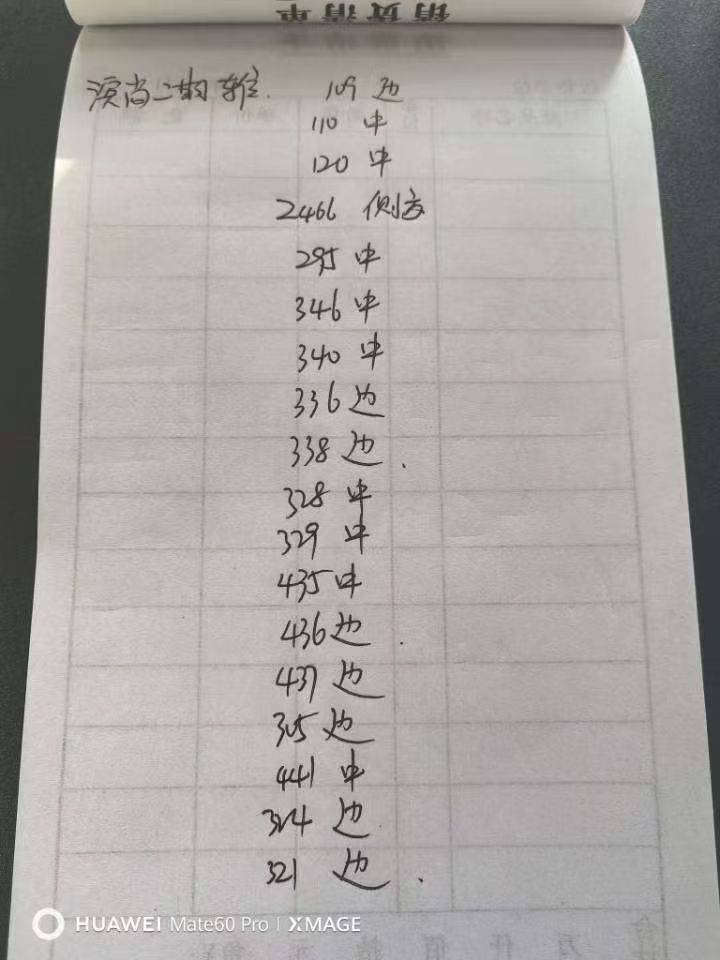 销货清单
二期 109 边
110 中
120 中
2466 侧
295 中
346 中
340 中
336 边
338 边.
328 中
329 中
435 中
436 边.
437 边
305 边
441 中
324 边
321 边.
HUAWEI Mate60 Pro | XMAGE